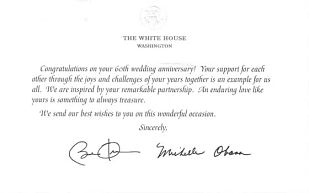 THE WHITE HOUSE
WASHINGTON
Congratulations on your 60th wedding anniversary! Your support for each
other through the joys and challenges of your years together is an example for us
all. We are inspired by your remarkable partnership. An enduring love like
yours is something to always treasure.
We send our best wishes to you on this wonderful occasion.
Sincerely,
Michelle Obama